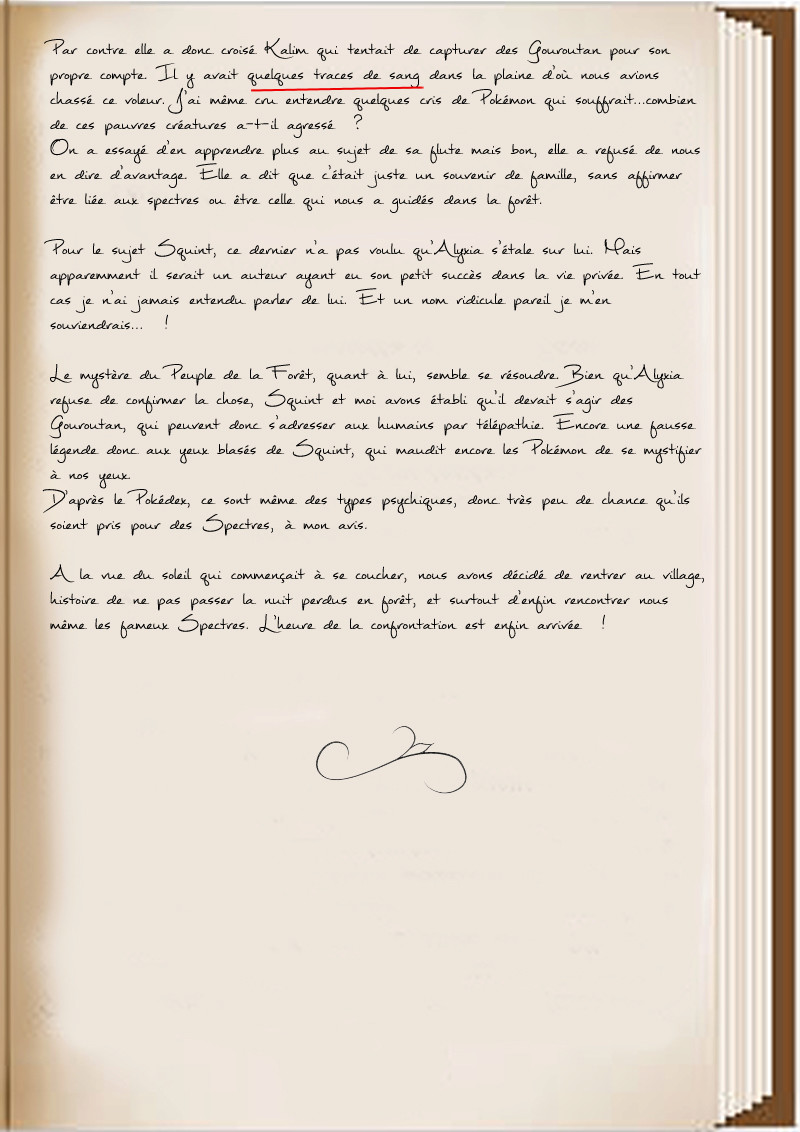 Par contre elle a donc croisé Kalim qui tentait de capturer des Gouroutan pour son
propre compte. Il y avait quelques traces de sang dans la plaine d'où nous avions
chassé ce voleur. J'ai même cru entendre quelques cris de Pokémon qui souffrait...combien
de ces pauvres créatures a-t-il agressé ?
On a essayé d'en apprendre plus au sujet de sa flute mais bon, elle a refusé de nous
en dire d'avantage. Elle a dit que c'était juste un souvenir de famille, sans affirmer
être liée aux spectres ou être celle qui nous a guidés dans la forêt.

Pour le sujet Squint, ce dernier n'a pas voulu qu'Alyxia s'étale sur lui. Mais
apparemment il serait un auteur ayant eu son petit succès dans la vie privée. En tout
cas je n'ai jamais entendu parler de lui. Et un nom ridicule pareil je m'en
souviendrais... !

Le mystère du Peuple de la Forêt, quant à lui, semble se résoudre. Bien qu'Alyxia
refuse de confirmer la chose, Squint et moi avons établi qu'il devait s'agir des
Gouroutan, qui peuvent donc s'adresser aux humains par télépathie. Encore une fausse
légende donc aux yeux blasés de Squint, qui maudit encore les Pokémon de se mystifier
à nos yeux.
D'après le Pokédex, ce sont même des types psychiques, donc très peu de chance qu'ils
soient pris pour des Spectres, à mon avis.

A la vue du soleil qui commençait à se coucher, nous avons décidé de rentrer au village,
histoire de ne pas passer la nuit perdus en forêt, et surtout d'enfin rencontrer nous
même les fameux Spectres. L'heure de la confrontation est enfin arrivée !